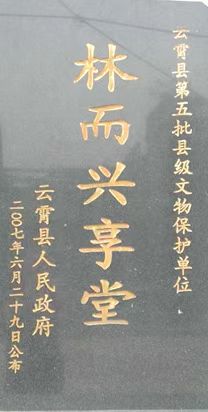 云霄县第五批县级文物保护单位
林而兴享堂
云霄县人民政府
二00七年六月二十九日公布